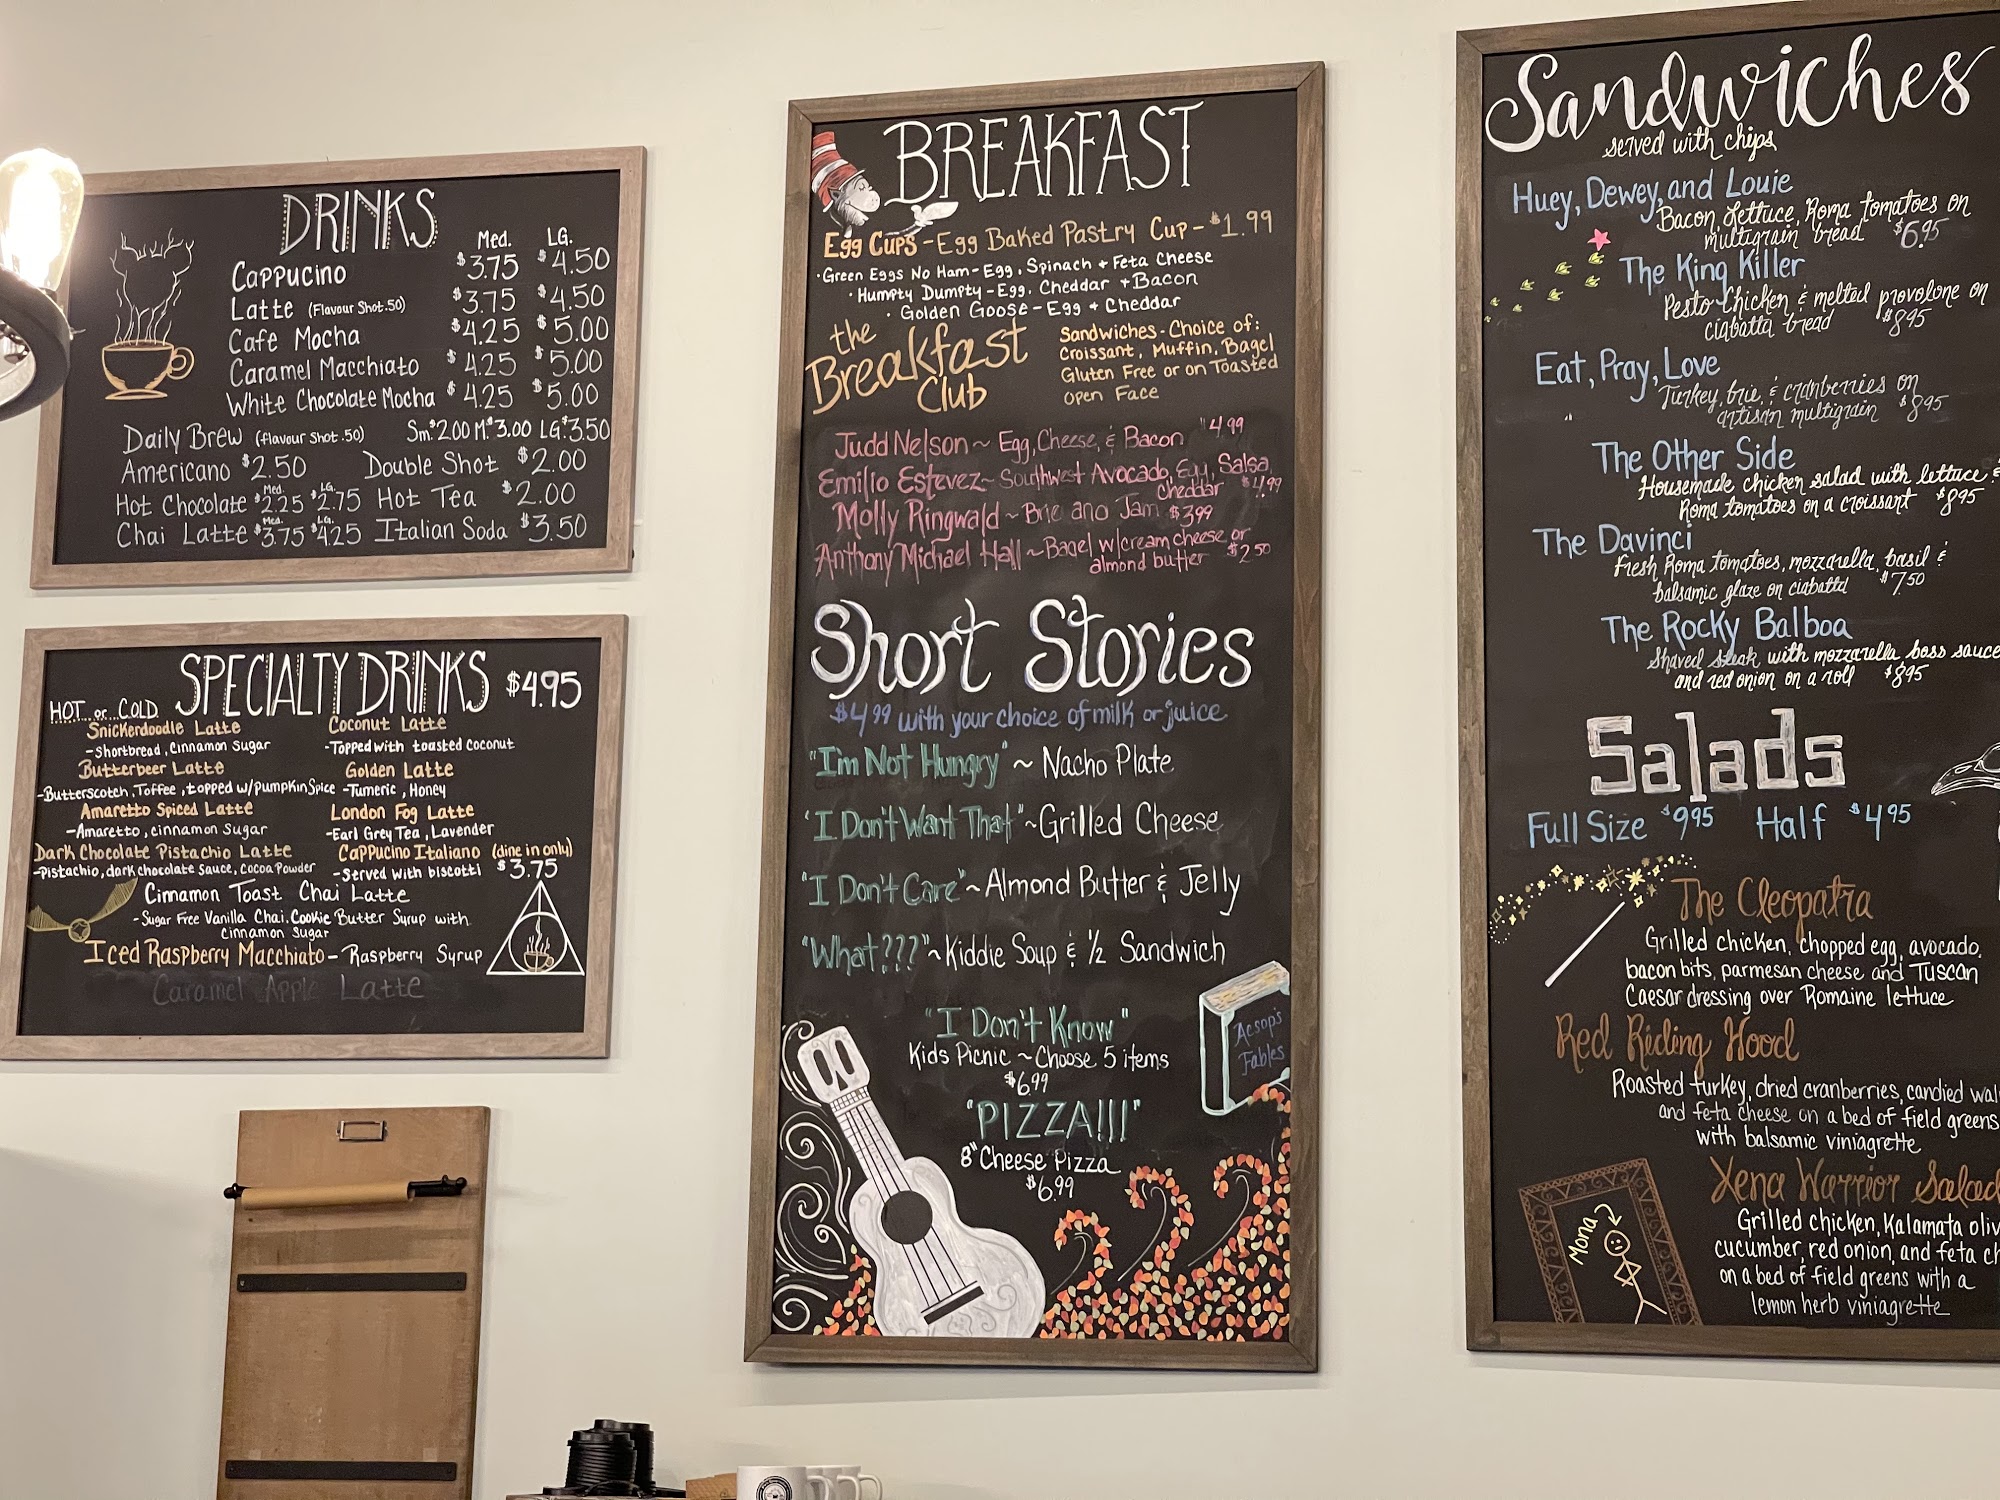 DRINKS
Med. LG.
Cappucino $3.75 $4.50
Latte (Flavour Shot .50) $3.75 $4.50
Cafe Mocha $4.25 $5.00
Caramel Macchiato $4.25 $5.00
White Chocolate Mocha $4.25 $5.00
Daily Brew (flavour Shot .50) Sm.$2.00 M.$3.00 LG.$3.50
Americano $2.50 Double Shot $2.00
Hot Chocolate Med. $2.25 LG. $2.75 Hot Tea $2.00
Chai Latte Med. $3.75 LG. $4.25 Italian Soda $3.50
SPECIALTY DRINKS $4.95
HOT...or...COLD
Snickerdoodle Latte
-Shortbread, Cinnamon Sugar
Butterbeer Latte
-Butterscotch, Toffee, topped w/pumpkin Spice
Amaretto Spiced Latte
-Amaretto, cinnamon sugar
Dark Chocolate Pistachio Latte
-Pistachio, dark chocolate sauce, Cocoa Powder
Coconut Latte
-Topped with toasted coconut
Golden Latte
-Tumeric, Honey
London Fog Latte
-Earl Grey Tea, Lavender
Cappucino Italiano (dine in only)
-Served with biscotti $3.75
Cinnamon Toast Chai Latte
-Sugar Free Vanilla Chai, Cookie Butter Syrup with
Cinnamon Sugar
Iced Raspberry Macchiato - Raspberry Syrup
Caramel Apple Latte
BREAKFAST
Egg Cups - Egg Baked Pastry Cup - $1.99
·Green Eggs No Ham - Egg, Spinach + Feta Cheese
·Humpty Dumpty - Egg, Cheddar + Bacon
·Golden Goose - Egg + Cheddar
the
Breakfast
Club
Sandwiches - Choice of:
Croissant, Muffin, Bagel
Gluten Free or on Toasted
Open Face
Judd Nelson ~ Egg, Cheese, & Bacon $4.99
Emilio Estevez ~ Southwest Avocado, Egg, Salsa,
Cheddar $4.99
Molly Ringwald ~ Brie and Jam $3.99
Anthony Michael Hall ~ Bagel w/cream cheese or
almond butter $2.50
Short Stories
$4.99 with your choice of milk or juice
"I'm Not Hungry" ~ Nacho Plate
"I Don't Want That" ~ Grilled Cheese
"I Don't Care" ~ Almond Butter & Jelly
"What???" ~ Kiddie Soup & ½ Sandwich
"I Don't Know"
Kids Picnic ~ Choose 5 items
$6.99
"PIZZA!!!"
8" Cheese Pizza
$6.99
Aesop's
Fables
Sandwiches
served with chips
Huey, Dewey, and Louie
Bacon, Lettuce, Roma tomatoes on
multigrain bread $6.95
The King Killer
Pesto Chicken & melted provolone on
ciabatta bread $8.95
Eat, Pray, Love
Turkey, brie, & cranberries on
artisan multigrain $8.95
The Other Side
Housemade chicken salad with lettuce &
Roma tomatoes on a croissant $8.95
The Davinci
Fresh Roma tomatoes, mozzarella, basil &
balsamic glaze on ciabatta $7.50
The Rocky Balboa
Shaved steak with mozzarella, boss sauce
and red onion on a roll $8.95
Salads
Full Size $9.95 Half $4.95
The Cleopatra
Grilled chicken, chopped egg, avocado,
bacon bits, parmesan cheese and Tuscan
Caesar dressing over Romaine lettuce
Red Riding Hood
Roasted turkey, dried cranberries, candied wal
and feta cheese on a bed of field greens
with balsamic viniagrette
Xena Warrior Salad
Grilled chicken, Kalamata oliv
cucumber, red onion, and feta ch
on a bed of field greens with a
lemon herb viniagrette
Mona